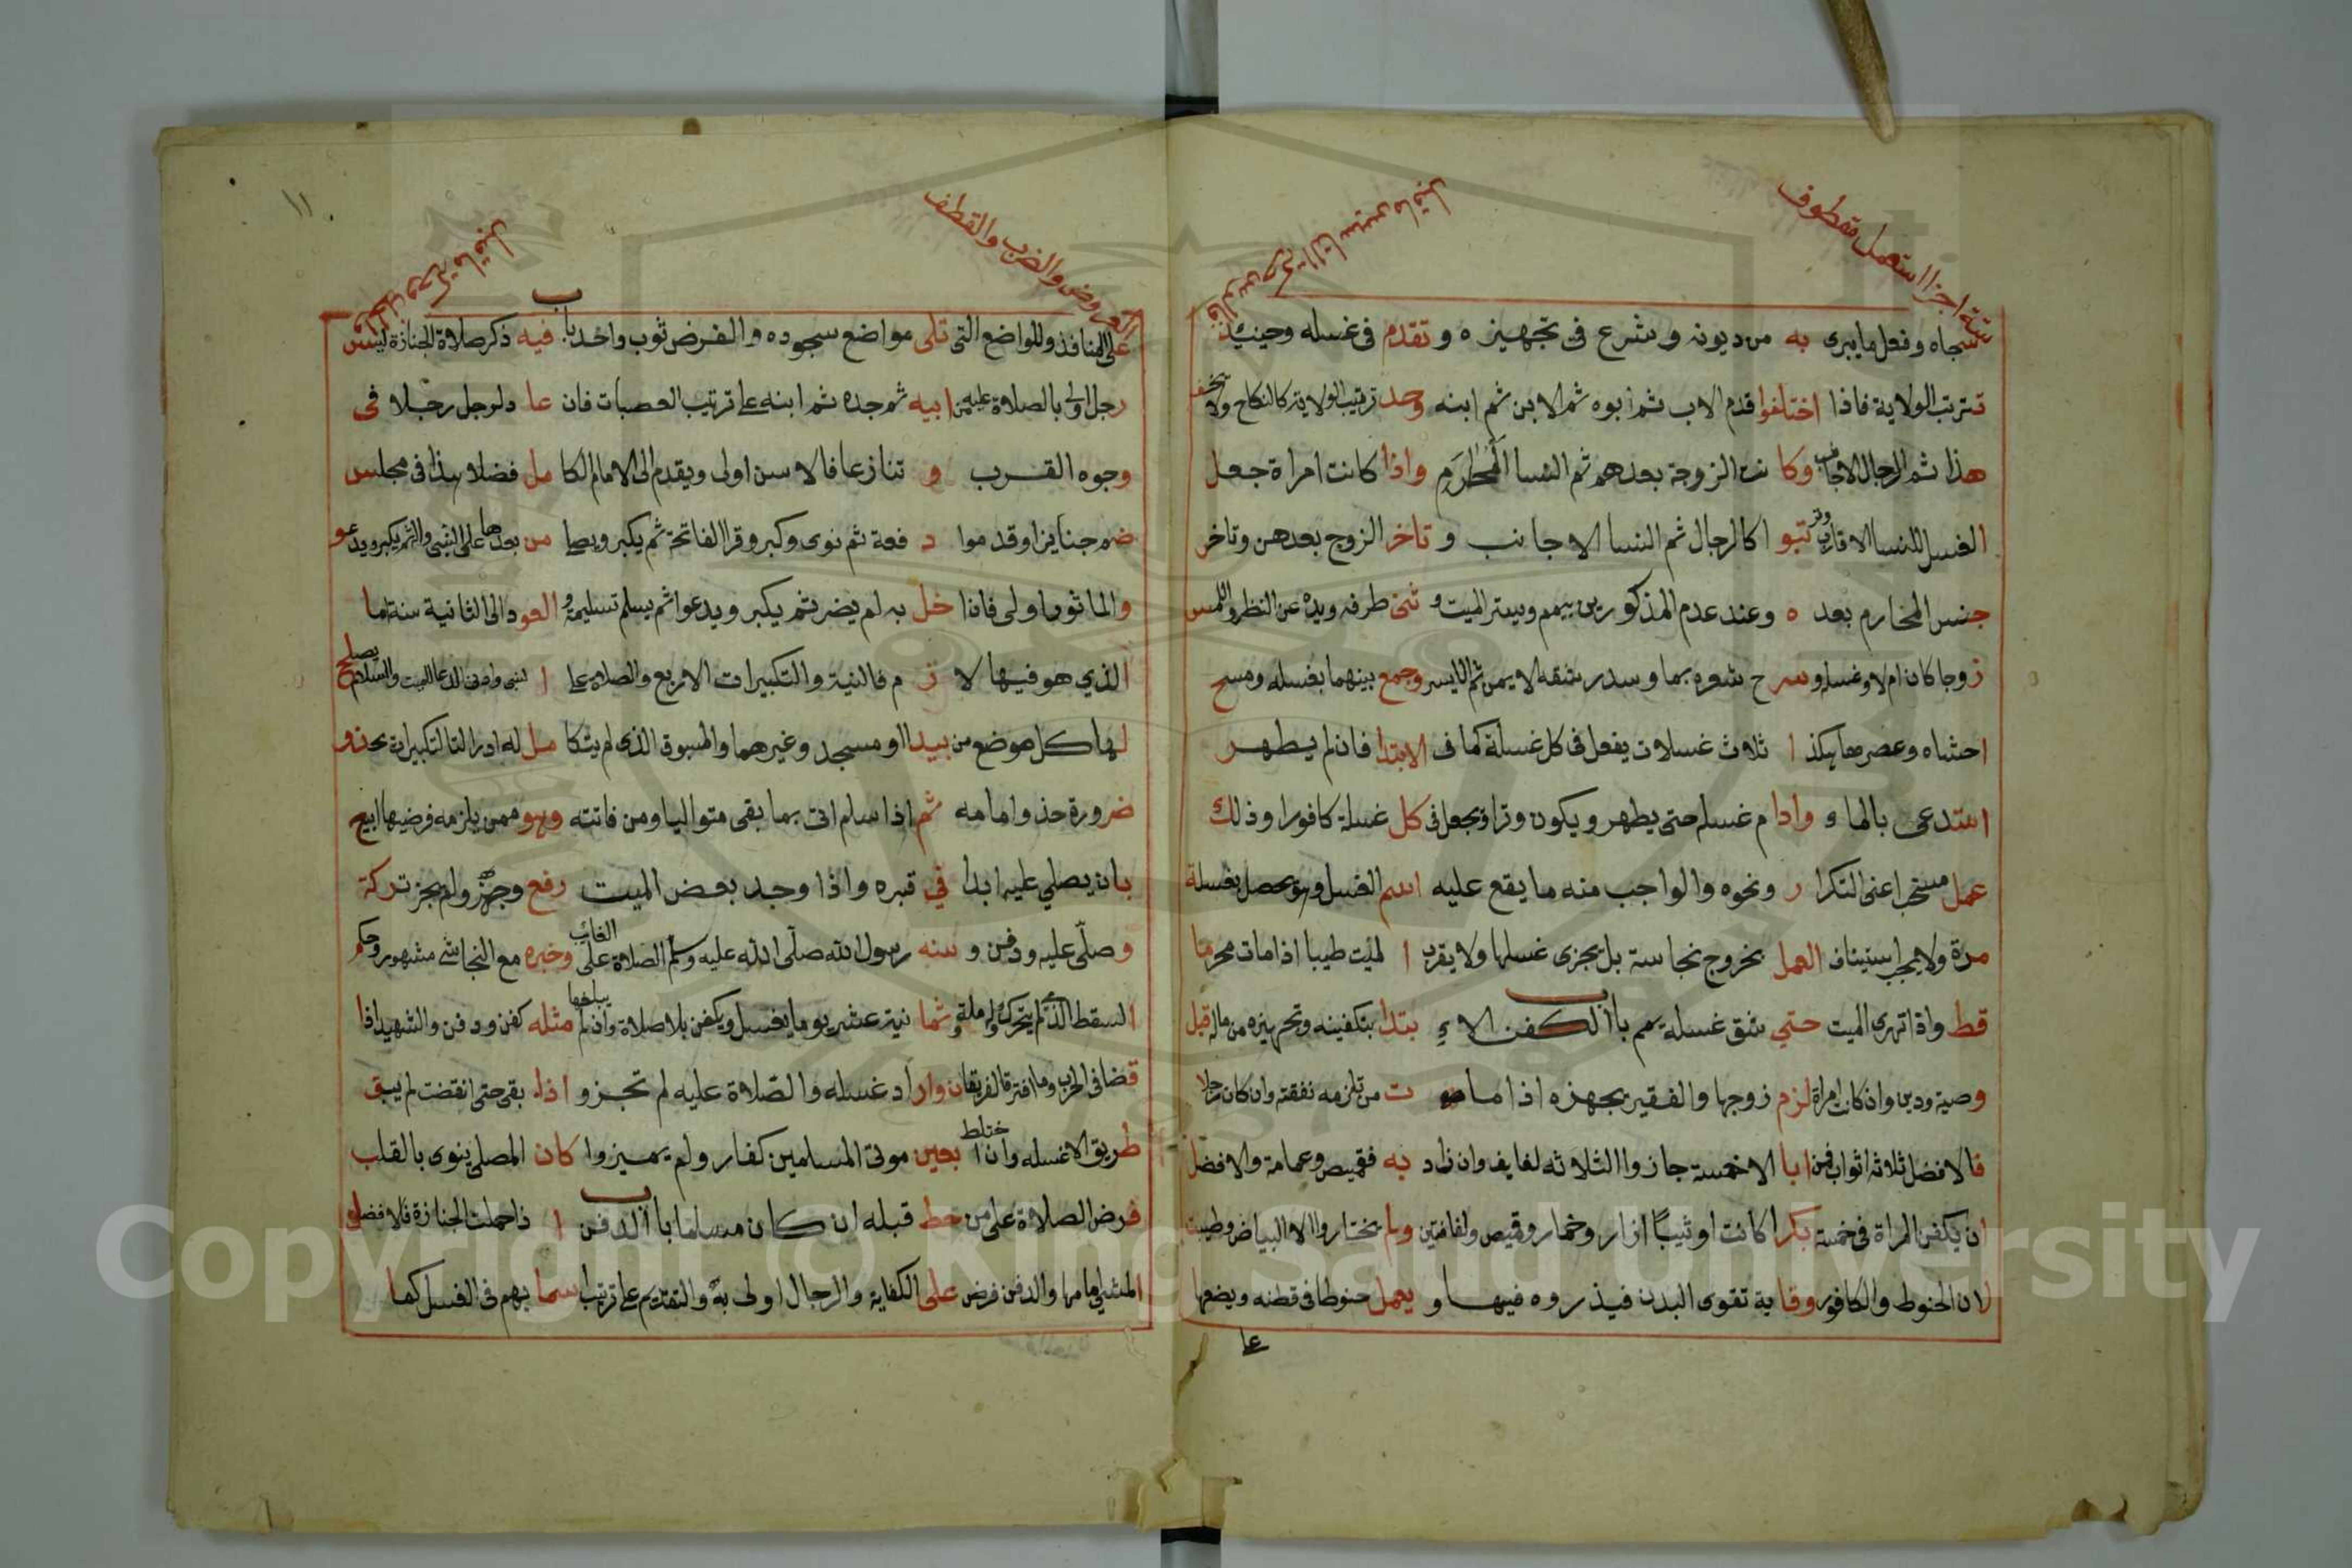 ستة اجزا استعمل مقطوف
سجاه وفعل ما يبرى به من ديونه وشرع فى تجهيزه وتقدم فى غسله وحينئذ
تترتب الولاية فاذا اختلفوا قدم الاب ثم ابوه ثم الابن ثم ابنه وحد ترتيب الولاية كالنكاح ولا
هذا ثم الرجال الاجانب وكانت الزوجة بعدهم ثم النسا المحارم واذا كانت امراة جعل
الغسل للنسا الاقارب وتبوا كالرجال ثم النسا الاجانب وتاخر الزوج بعدهن وتاخر
جنس المحارم بعده وعند عدم المذكورين ييمم ويستر الميت وثنى طرفه ويده عن النظر واللمس
زوجا كان ام لا وغسله وسرح شعره بما وسدر شقه الايمن ثم الايسر وجمع بينهما بغسله ومسح
احشاه وعصرها هكذا ثلاث غسلات يفعل فى كل غسلة كما فى الابتدا فان لم يطهر
استدعى بالما وادام غسله حتى يطهر ويكون وترا ويجعل فى كل غسلة كافورا وذلك
عمل مستحب اعنى التكرار ونحوه والواجب منه ما يقع عليه اسم الغسل وهو يحصل بغسلة
مرة ولا يجب استيناف العمل بخروج نجاسة بل يجزى غسلها ولا يقرب الميت طيبا اذا مات محرما
قط واذا تهرى الميت حتى شق غسله يمم باب الكفن الا يبتدا بتكفينه وتجهيزه من ماله قبل
وصية ودين وان كانت امراة لزم زوجها والفقير يجهزه اذا مات من تلزمه نفقته وان كان رجلا
فالافضل ثلاثة اثواب فمن ابا الا خمسة جازوا الثلاثه لفايف وان زاد به فقميص وعمامة والافضل
ان يكفن المراة فى خمسة بكرا كانت او ثيبا ازار وخمار وقميص ولفافتين ولم يختاروا الا البياض وطيبت
لان الحنوط والكافور وقاية تقوى البدن فيذروه فيها ويعمل حنوطا فى قطنه ويضعها
على
١١
العروض والضرب والقطف
على المنافذ والمواضع التى تلى مواضع سجوده والفرض ثوب واحد باب فيه ذكر صلاة الجنازة ليس
رجل اولى بالصلاة عليه من ابيه ثم جده ثم ابنه على ترتيب العصبات فان عادل رجل رجلا فى
وجوه القرب وتنازعا فالاسن اولى ويقدم الى الامام الكامل فضلا هذا فى مجلس
ضم جنايزا وقدموا دفعة ثم نوى وكبر وقرا الفاتحة ثم يكبر ويصلى من بعدها على النبى والثم يكبر ويدعو
والماثور اولى فاذا خل به لم يضر ثم يكبر ويدعوا ثم يسلم تسليمة والعود الى الثانية سنة ما
الذي هو فيها لازم فالنية والتكبيرات الاربع والصلاه على النبى وادنى الدعا للميت والسلام يصلح
لها كل موضع من بيدا او مسجد وغيرهما والمسبوق الذى لم يتكامل له ادراك التكبيرات يحذو
ضرورة حذو امامه ثم اذا سلم اتى بما بقى متواليا ومن فاتته وهو ممن يلزمه فرضها ابيح
بان يصلي عليه ابدا في قبره واذا وجد بعض الميت رفع وجهز ولم يجز تركه
وصلى عليه ودفن وسنه رسول الله صلى الله عليه وسلم الصلاة على الغائب وخبره مع النجاشى مشهور وحكم
السقط الذى لم يتحرك ولم ملة وثمانية عشر يوما يغسل ويكفن بلا صلاة وان لم يبلغها مثله كفن ودفن والشهيد اذا
قضا فى الحرب وما افترقا الفريقان واراد غسله والصلاة عليه لم تجز واذا بقى حتى انقضت لم يبق
طريق الا غسله وان اختلط بعين موتى المسلمين كفار ولم يميزوا كان المصلى ينوى بالقلب
فرض الصلاة على من حط قبله ان كان مسلما باب الدفن اذا حملت الجنازة فالافضل
المشى امامها والدفن فرض على الكفاية والرجال اولى به والتقديم على ترتيب اسما بهم فى الغسل كما
Copyright © King Saud University